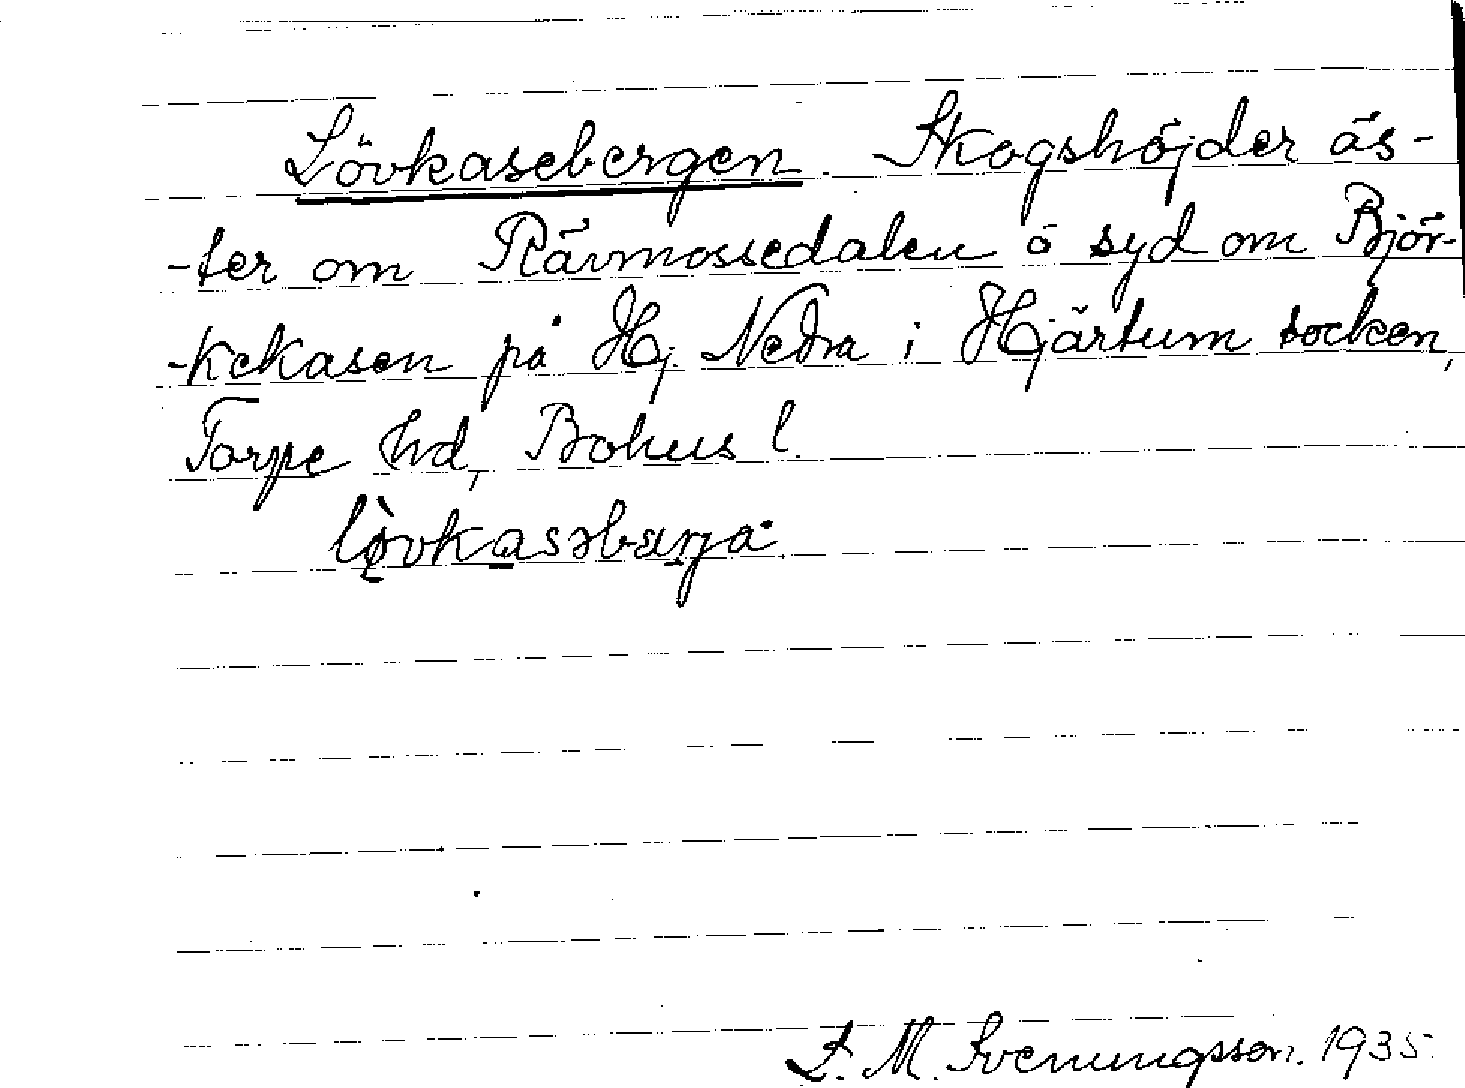 Lövkasebergen. Skogshöjder ös-
-ter om Rävmossedalen o syd om Björ-
-kekasen på Hj. Nedra i Hjärtum socken,
Torpe hd, Bohus l.
lòvkasəbærja.
L. M. Svenungsson. 1935.